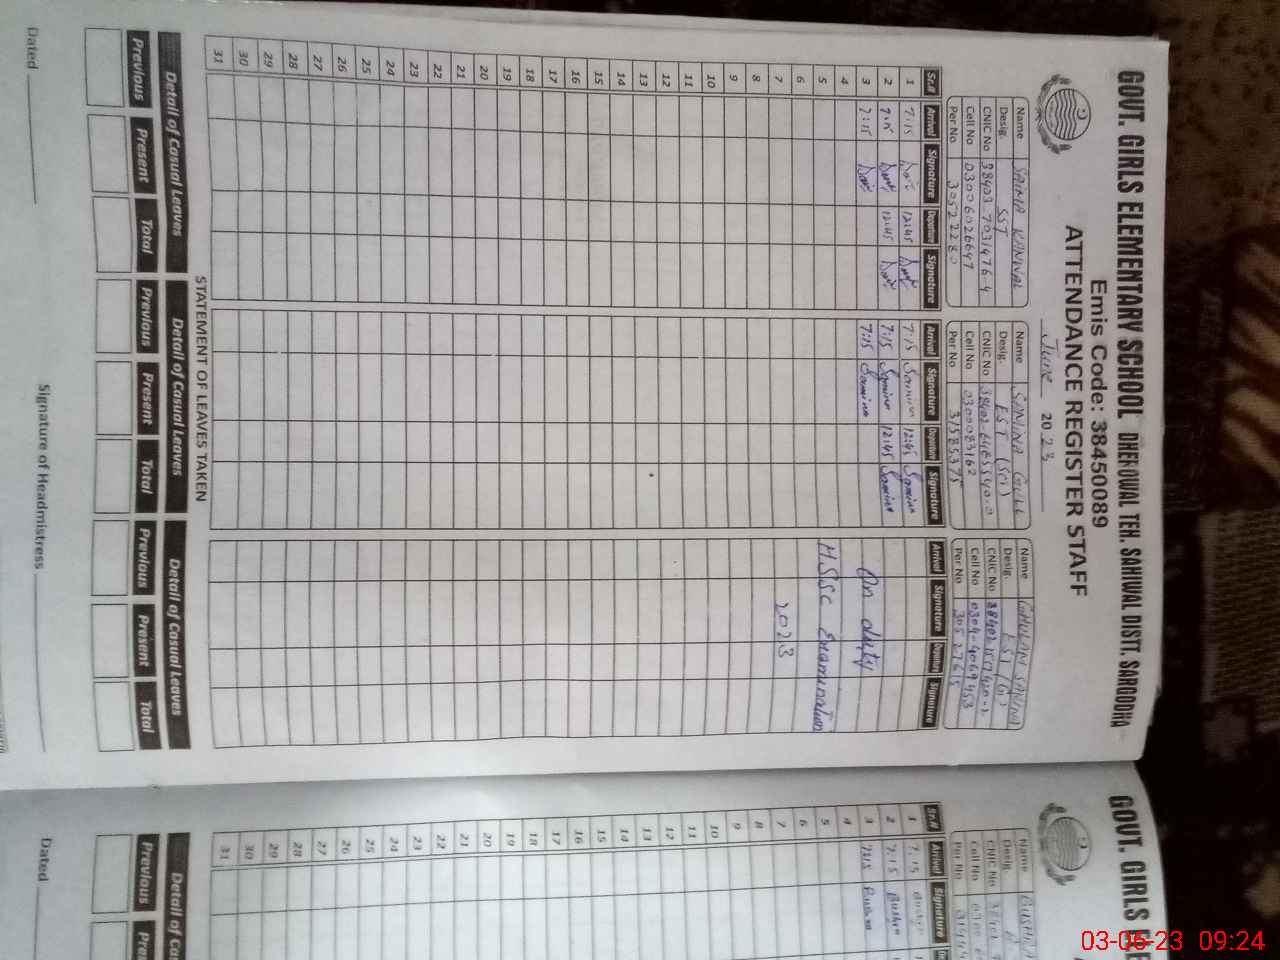 GOVT. GIRLS ELEMENTARY SCHOOL DHEROWAL TEH. SAHIWAL DISTT. SARGODHA
Emis Code: 38450089
ATTENDANCE REGISTER STAFF
June 2023
Name SAIMA KANWAL
Desig. SST
CNIC No 38403-7031476-4
Cell No 03006026647
Per No 30522280
Sr.# Arrival Signature Departure Signature
1 7:15 12:45
2 7:15 12:45
3 7:15
4
5
6
7
8
9
10
11
12
13
14
15
16
17
18
19
20
21
22
23
24
25
26
27
28
29
30
31
Name SAMINA GULL
Desig. EST (Sci)
CNIC No
Cell No 0300083162
Per No 31585375
Arrival Signature Departure Signature
7:15 Samina 12:45 Samina
7:15 Samina 12:45 Samina
7:15 Samina
Name GHULAM SAKINA
Desig. EST (G)
CNIC No
Cell No 0304-4069453
Per No 30527615
Arrival Signature Departure Signature
On duty
HSSC Examination
2023
STATEMENT OF LEAVES TAKEN
Detail of Casual Leaves Detail of Casual Leaves Detail of Casual Leaves
Previous Present Total Previous Present Total Previous Present Total
Dated Signature of Headmistress
GOVT. GIRLS ELE
Name BUSHRA
Desig.
CNIC No
Cell No
Per No
Sr.# Arrival Signature
1 7:15 Bushra
2 7:15 Bushra
3 7:15 Bushra
4
5
6
7
8
9
10
11
12
13
14
15
16
17
18
19
20
21
22
23
24
25
26
27
28
29
30
31
Detail of Ca
Previous Pre
Dated
03-06-23 09:24